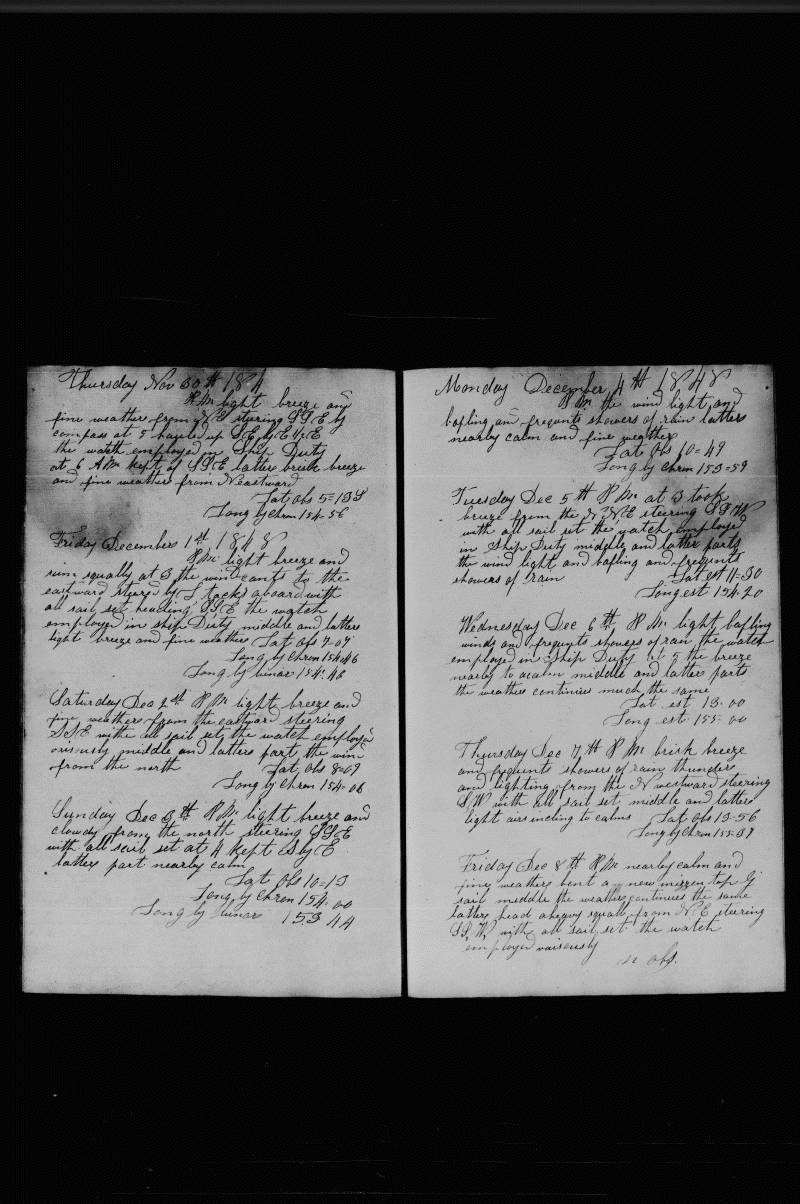 Thursday Nov 30th 184
P.M. light breeze and
fine weather from NE steering SSE by
compass at 5 hauled up SE by E ½ E
the watch employed in Ship Duty
at 6 AM kept of SSE latter brisk breeze
and fine weather from N eastward
Lat obs 5=13 S
Long by Chron 154-56
Friday December 1st 1848
P.M. light breeze and
rim squally at 3 the wind cants to the
eastward steered by L tacks aboard with
all sail set heading SSE the watch
employed in ship Duty middle and latter
light breeze and fine weather Lat obs 7-07
Long by Chron 154.46
Long by lunar 154.46
Saturday Dec 2st P.M. light breeze and
fine weather from the eastward steering
SSE withe all sail set the watch employed
variously middle and latters part the win
from the north Lat obs 8-09
Long by Chron 154-06
Sunday Dec 3th P.M. light breeze and
clowdy from the north steering SSE
with all sail set at 4 kept S by E
latter part nearly calm
Lat obs 10=13
Long by Chron 154.00
Long by lunar 153 44
Monday December 4th 1848
P.M. the wind light and
bafling and frequnts showers of rain latters
nearly calm and fine weather
Lat obs 10=49
Long by Chron 153=59
Tuesday Dec 5th P.M. at 3 took
breeze from the NNE steering SSW
with all sail set the watch employed
in Ship Duty middly and latter parts
the wind light and bafling and frequnts
showers of rain Lat est 11-30
Long est 154.20
Wednesday Dec 6th P.M. light bafling
winds and frequnts showers of rain the watch
employed in Ship Duty at 5 the breeze
nearly to acalm middle and latters parts
the weather continues much the same
Lat est 13.00
Long est 155-00
Thursday Dec 7th P.M. brisk breeze
and frequnts showers of rain thunders
and lighting from the N westward steering
SW with all sail set middle and latters
light airs incling to calms Lat obs 13-56
Long by Chron 155-37
Friday Dec 8th P.M. nearly calm and
finy weathers bent a new mizzen top G
sail middle the weather continues the same
latters head a heavy squall from NE steering
SSW with all sail set the watch
employed variously
no obs.